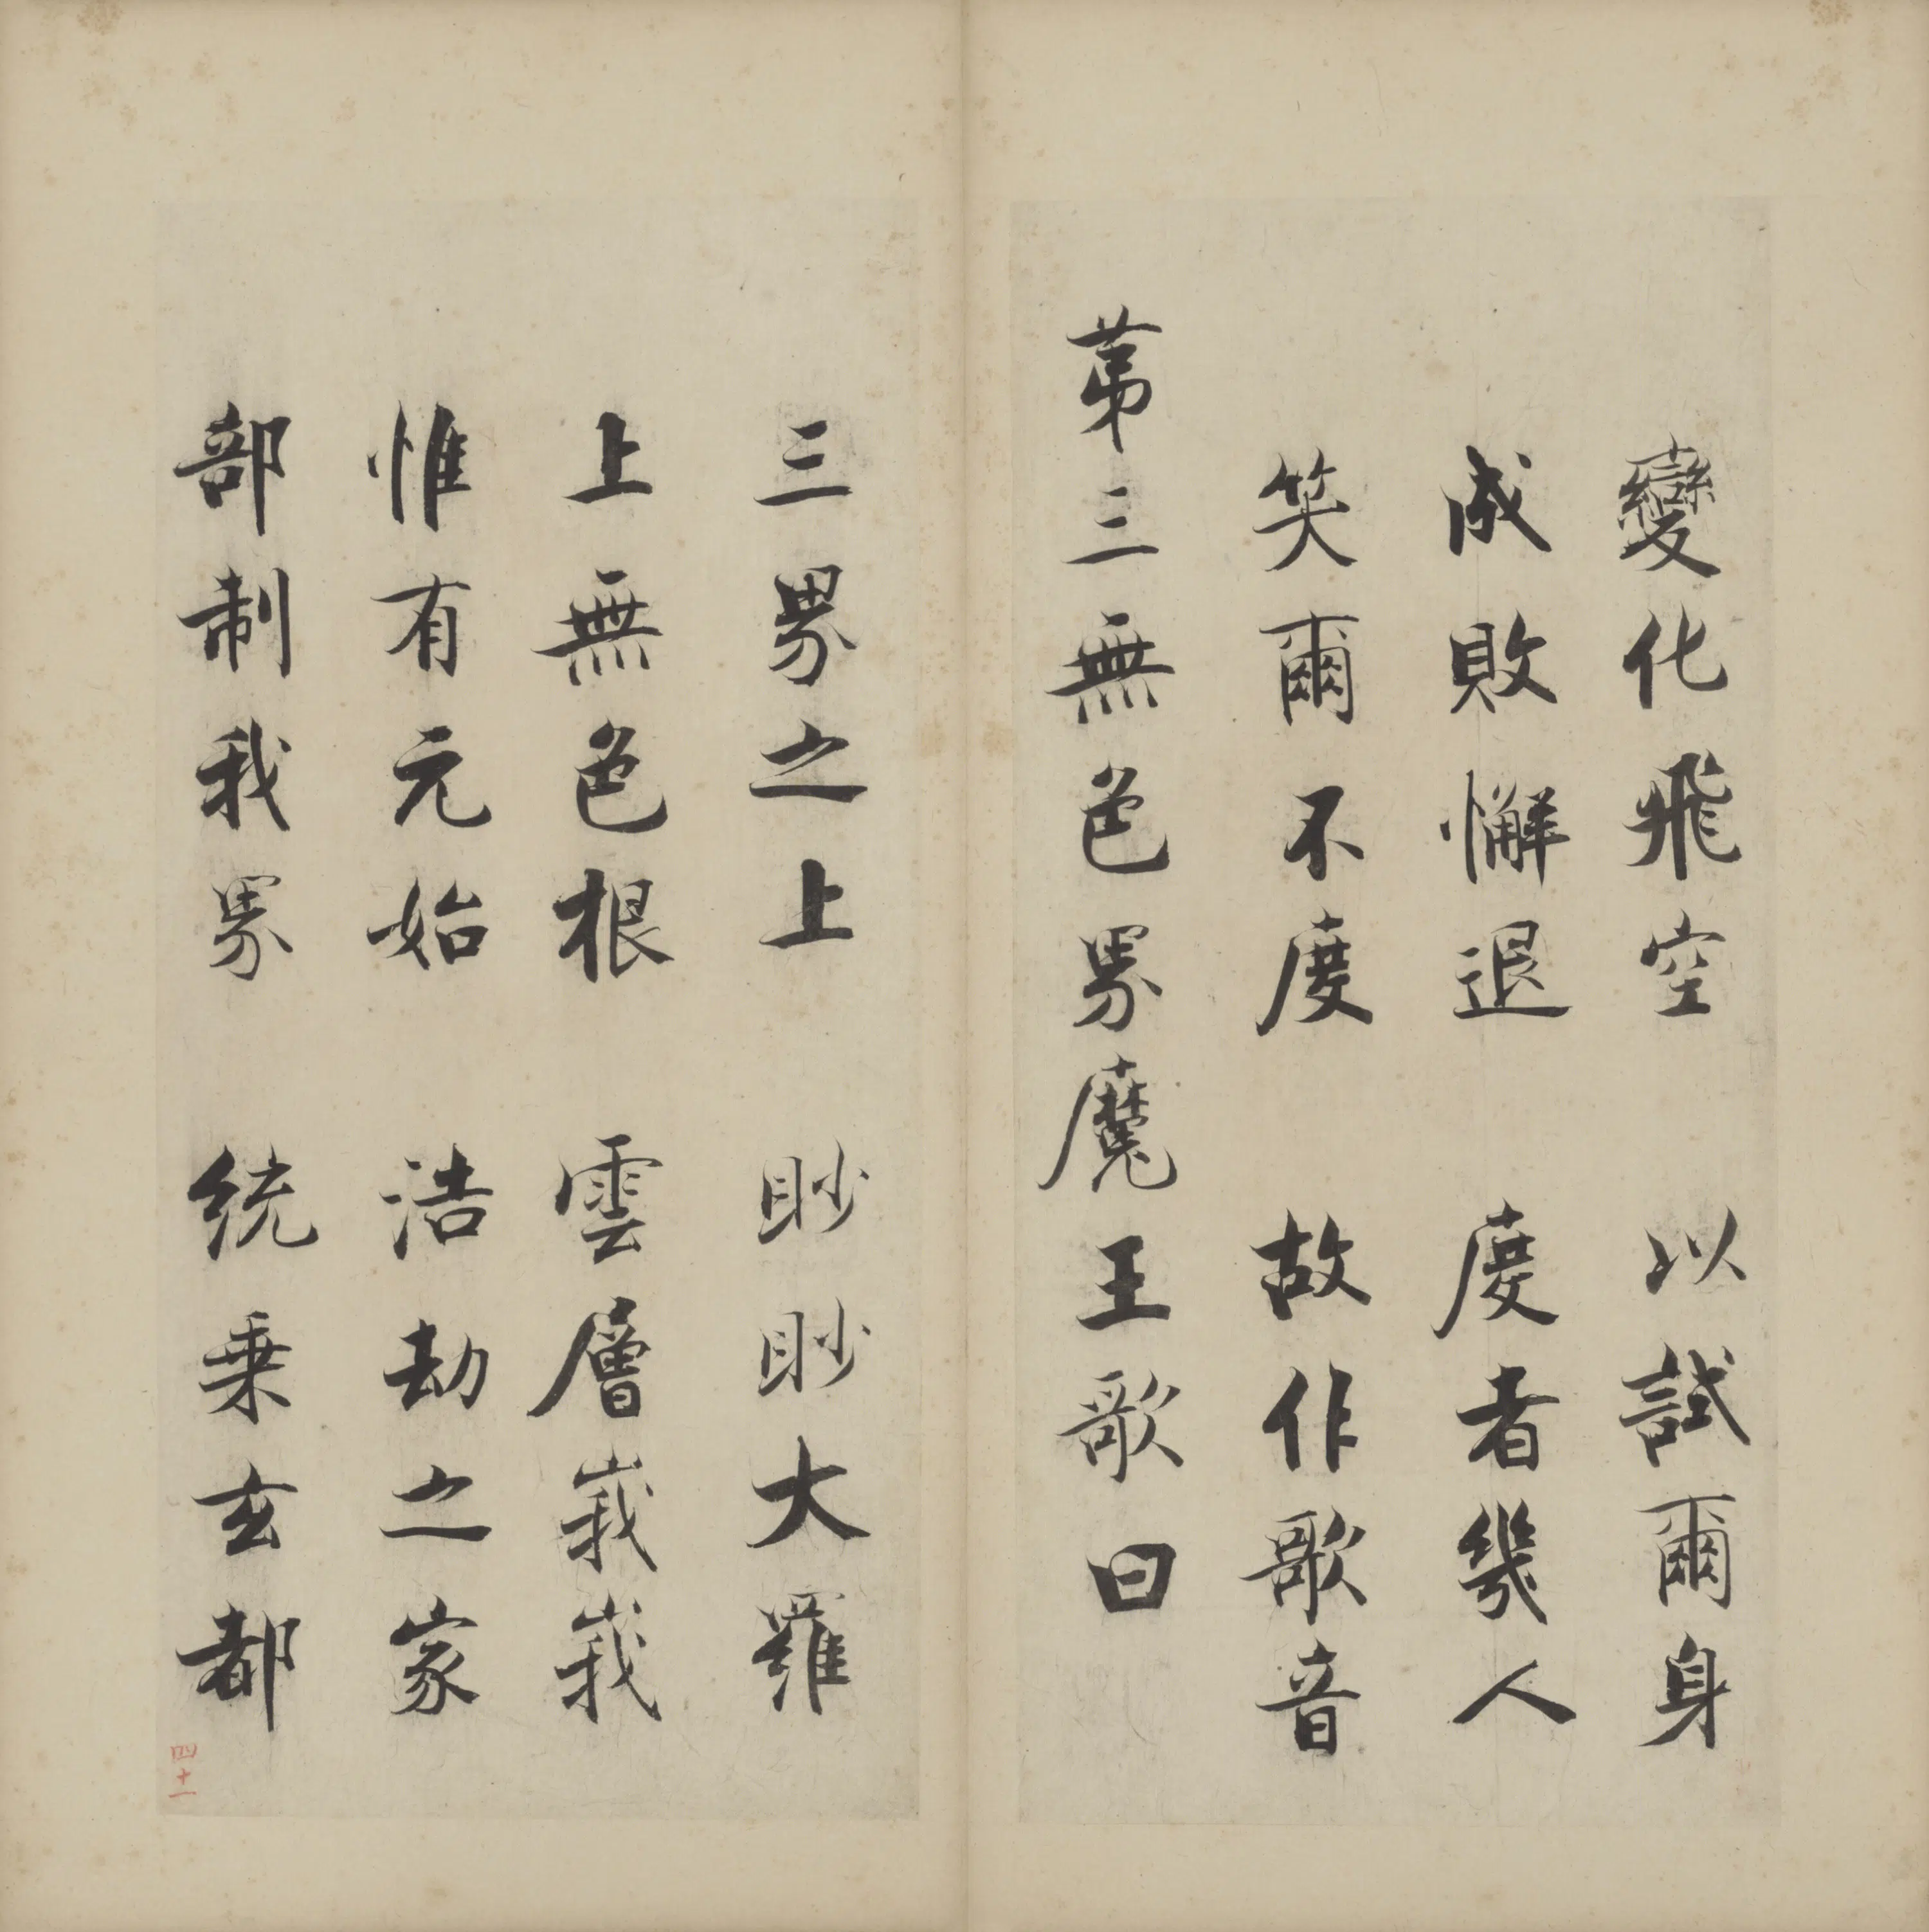 變化飛空　以試爾身
成敗懈退　度者幾人
笑爾不度　故作歌音
苐三無色界魔王歌曰
三界之上　眇眇大羅
上無色根　雲層峩峩
惟有元始　浩劫之家
部制我界　統乗玄都
四十一